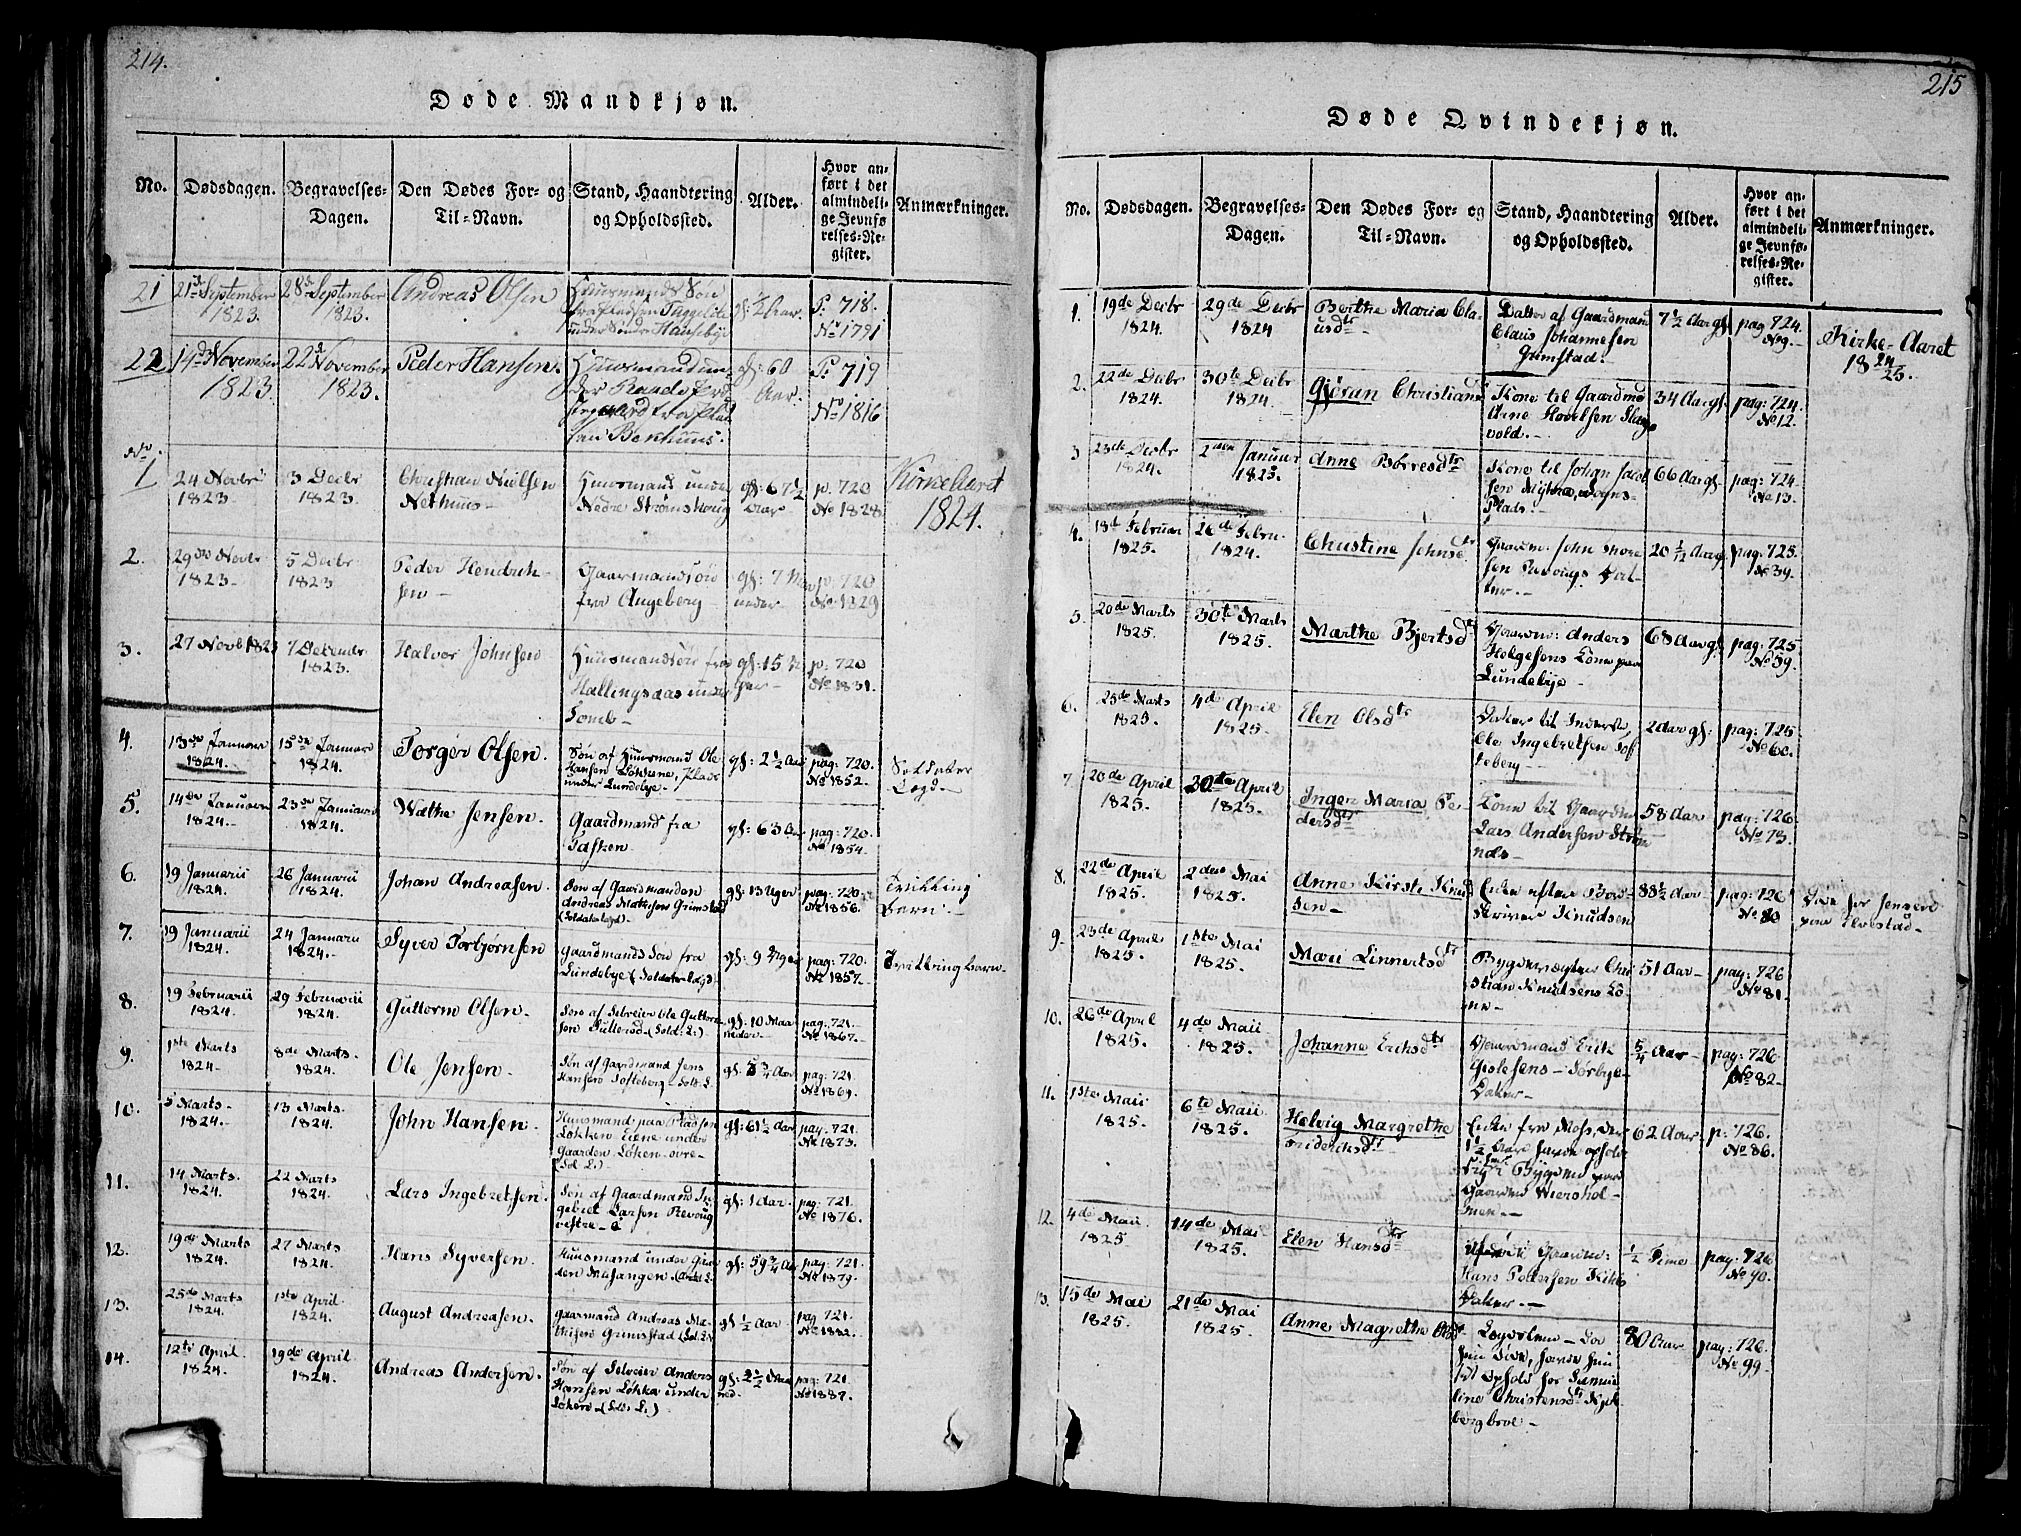 214.
Døde Mandkjøn.
No.
Dødsdagen.
Begravelses-
Dagen.
Den Dødes For- og
Til-Navn.
Stand, Haandtering
og Opholdssted.
Alder.
Hvor an-
ført i det
almindeli-
ge Jevnfø
relses-Re-
gister.
Anmærkninger.
21
21de September
1823.
28de September
1823.
Andreas Olsen
Huusmands Søn
under Søndr Hauseby
gl: 1/2 Aar.
P. 718.
No 1791
22
14de November
1823.
22de November
1823.
Peder Hansen.
Huusmand un-
der Raade Præ
stegaard fra Plad
sen Benhuus.
gl: 60
Aar.
P. 719
No 1816
No.
1
24 Novbr
1823
3 Decbr
1823
Christian Nielsen
Nethuus-
Huusmand under
Nedre Strømshoug
gl: 67 1/2
Aar
p. 720
No 1828
Kirke Aaret
1824.
2.
29de Novbr
1823-
5 Decbr
1823
Peder Hendrik-
sen-
Gaarmandsøn
fra Augeberg-
gl: 7 Ma
neder
p. 720
No 1829
3.
27 Novb 1823
7 Decembr
1823.
Halvor Johnsen
Huusmandsøn fra
Hallingsaas under
Tomb-
gl: 15
p: 720
No 1831.
4.
13de Januar
1824.
15de Januar
1824.
Torger Olsen.
Søn af Huusmand Ole
Hansen Løkkene, Plads
under Lundebye.-
gl: 2 1/2 Aar
pag: 720.
No 1852.
Soldater
Lægd-
5.
14de Januar
1824.-
23de Januar
1824.
Wæthe Jensen.
Gaardmand fra
Tasken-
gl: 63 Aar
pag: 720.
No 1854.
6.
19 Januarii
1824.
26 Januarii
1824.
Johan Andreasen.
Søn af Gaardmanden
Andreas Mathisen Grimstad
(Soldaterlægd)-
gl: 13 Uger
pag: 720.
No 1856.
Tvilling
Barn.-
7.
19 Januarii
1824.
24 Januarii
1824.-
Syver Torbjørnsen
Gaardmands Søn fra
Lundebye (Soldaterlægd)
gl: 9 Uger
pag: 720.
No 1857.-
Tvilling barn-
8.
19 Februarii
1824.
29 Februarii
1824.
Guttorm Olsen-
Søn af Selveier Ole Guttorm
sen Huttersrød-(Sold: L:)-
gl: 10 Maa
neder-
pag: 721.
No 1867.
9.
1ste Marts
1824-
8de Marts-
1824.
Ole Jensen-
Søn af Gaardmand Jens
Hansen Tofteberg-Sold: L.
gl: 5 3/4 Aar
pag: 721.
No 1869.
10.
5 Marts-
1824.-
13 Marts.
1824.
John Hansen.
Huusmand paa Pladsen
Løkken Eiene under
Gaarden Løken øvre-
(Sol: L:)-
gl: 61 1/2 Aar
pag: 721.
No 1873.
11.
14 Marts
1824.
22 Marts
1824.
Lars Ingebretsen.
Søn af Gaardmand In-
gebret Larsen Revoug
vestre-
gl: 1 Aar.
pag: 721.
No 1876.
12.
19de Marts
1824.
27 Marts
1824.
Hans Syversen.
Huusmand under Gaar
den Musangen.
gl: 59 3/4 Aar
pag: 721.
No 1879.
13.
25de Marts
1824.
1ste April
1824.
August Andreasen.
Gaarmand Andreas Ma-
thisen Grimstad (Sol: L:)
gl: 1/2 Aar
pag 721.
No 1882.
14.
12te April
1824.
19de April
1824.
Andreas Andersen.
Søn af Selveier Anders
Hansen Løkka under
Løken-(Sold: L:)
gl: 2 1/2 Maa
ned.
pag: 721.
No 1887.
215
Døde Qvindekjøn.
No.
Dødsdagen.
Begravelses-
Dagen.
Den Dødes For- og
Til-Navn.
Stand, Haandtering
og Opholdssted.
Alder.
Hvor an-
ført i det
almindeli-
ge Jevnfø-
relses-Re-
gister.
Anmærkninger.
1.
19de Decbr
1824.
29de Decbr
1824
Berthe Maria Cla-
usdtr
Datter af Gaardmand
Claus Johannesen
Grimstad.
7 1/2 Aar gl.
pag 724.
No 9.-
Kirke-Aaret
1824/25.
2.
22de Decbr
1824.
30te Decbr
1824.
Gjøran Christiansd
Kone til Gaardmd
Arne Hovelsen Slang
vold.-
34 Aar gl.
pag: 724.
No 12.
3
23de Decbr
1824.
2den Januar
1825.
Anne Børresdtr
Kone til Johan Jacob
sen Plads.-
66 Aar gl.
pag: 724.
No 13.
4.
18de Februar
1825.
26de Febru.
1824.
Christine Johnsdtr
Gaardm. John Thore
sen Revougs Dat-
ter.-
20 1/12 Aar gl.
pag: 725.
No 39.
5.
20de Marts
1825.
30te Marts
1825.
Marthe Bjertsdtr
Gaardm: Anders
Helgesens Kone paa
Lundebye-
68 Aar gl.
pag: 725
No 59.
6.
25de Marts
1825.
4de April
1825.
Elen Olsdtr
Datter til Inderst
Ole Ingebretsen Tof
teberg-
2 Aar gl:
pag: 725
No 60.
7.
20de April
1825.
30te April
1825.
Inger Maria Pe
dersdtr
Kone til Gaardm
Lars Andersen Strøm
nds-
58 Aar
pag: 726.
No 73.
8.
22de April
1825.
2den Mai
1825.
Anne Kirste Knud
sen-
Enke efter Bord-
skriver Knudsen
88 1/2 Aar
pag: 726
No 80
Død for Jensen
paa Elvestad-
9.
23de April
1825.
1ste Mai
1825.
Mari Linnertsdtr
Bygdemægler Chri
stian Knudsens Ko-
ne-
51 Aar-
pag: 726
No 81.
10.
26de April
1825.
4de Maii
1825.
Johanne Eriksdtr
Gaardmand Erik
Gislesens-Torbye-
Datter-
5/4 Aar-
pag: 726-
No 82-
11.
1ste Maii
1825.
6te Maii
1825.
Helvig Margrethe
Friderichsdtr
Enke fra Moss, der
1 1/2 Aar havde opholdt
sig i Bygden paa
Gaarden Wiershol-
men.-
62 Aar.
p: 726.
No 86.
12.
4de Maii.
1825
14de Mai
1825.
Elen Hansdtr
Gaardm:
Hans Pedersen Kihls
Datter.-
1/2 Time
pag: 726
No 90.
13.
15de Mai
1825.
21de Mai
1825.
Anne Magrethe Olsdtr
Lægdslem-
hun døde, havde hun
sit Ophold for
line Christensdtr
bergbroe-
80 Aar
pag: 726.
No 99-